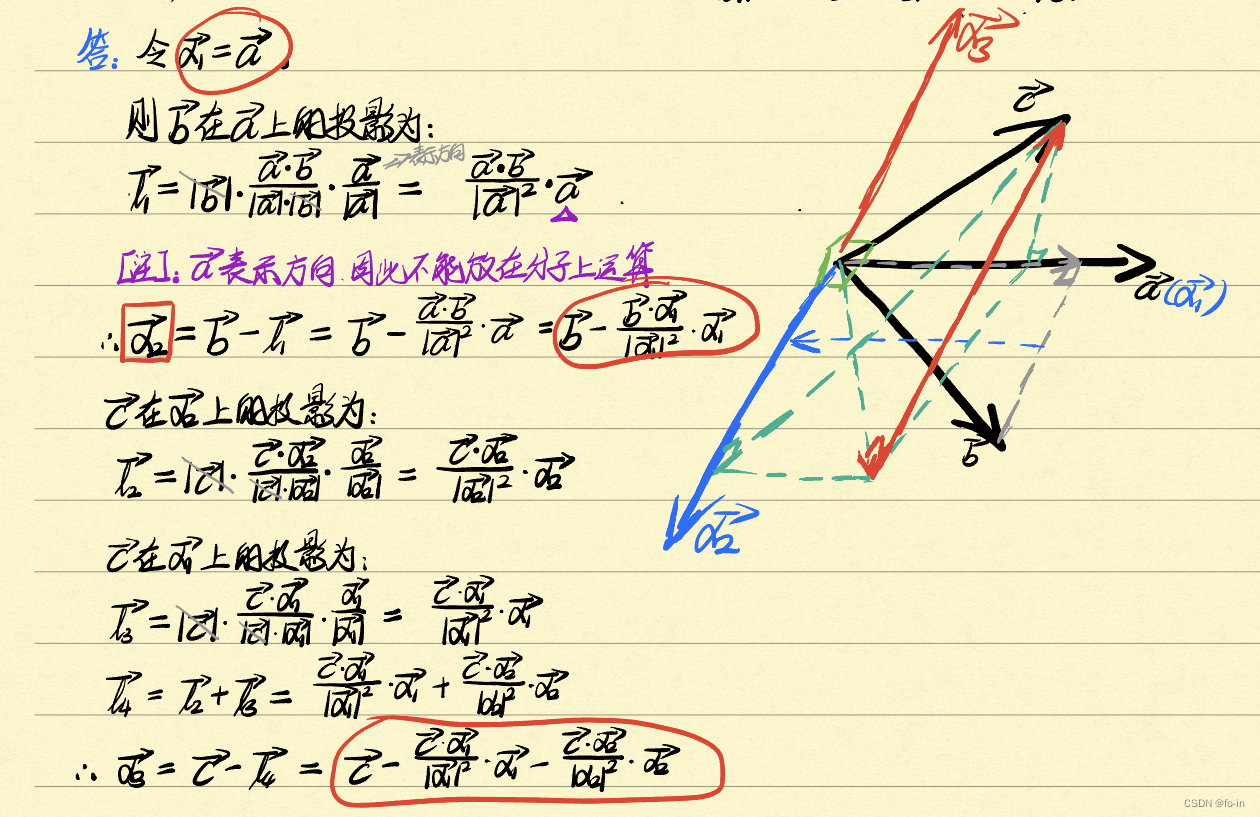 答: 令 $\vec{\alpha_1} = \vec{a}$,
则 $\vec{b}$ 在 $\vec{a}$ 上的投影为:
$\vec{l_1} = |\vec{b}| \cdot \frac{\vec{a} \cdot \vec{b}}{|\vec{a}| \cdot |\vec{b}|} \cdot \frac{\vec{a}}{|\vec{a}|} = \frac{\vec{a} \cdot \vec{b}}{|\vec{a}|^2} \cdot \vec{a}$
⇒表示方向
[注]: $\vec{a}$ 表示方向 因此不能放在分子上运算
∴ $\vec{\alpha_2} = \vec{b} - \vec{l_1} = \vec{b} - \frac{\vec{a} \cdot \vec{b}}{|\vec{a}|^2} \cdot \vec{a} = \vec{b} - \frac{\vec{b} \cdot \vec{\alpha_1}}{|\vec{\alpha_1}|^2} \cdot \vec{\alpha_1}$
$\vec{c}$ 在 $\vec{\alpha_2}$ 上的投影为:
$\vec{l_2} = |\vec{c}| \cdot \frac{\vec{c} \cdot \vec{\alpha_2}}{|\vec{c}| \cdot |\vec{\alpha_2}|} \cdot \frac{\vec{\alpha_2}}{|\vec{\alpha_2}|} = \frac{\vec{c} \cdot \vec{\alpha_2}}{|\vec{\alpha_2}|^2} \cdot \vec{\alpha_2}$
$\vec{c}$ 在 $\vec{\alpha_1}$ 上的投影为:
$\vec{l_3} = |\vec{c}| \cdot \frac{\vec{c} \cdot \vec{\alpha_1}}{|\vec{c}| \cdot |\vec{\alpha_1}|} \cdot \frac{\vec{\alpha_1}}{|\vec{\alpha_1}|} = \frac{\vec{c} \cdot \vec{\alpha_1}}{|\vec{\alpha_1}|^2} \cdot \vec{\alpha_1}$
$\vec{l_4} = \vec{l_2} + \vec{l_3} = \frac{\vec{c} \cdot \vec{\alpha_1}}{|\vec{\alpha_1}|^2} \cdot \vec{\alpha_1} + \frac{\vec{c} \cdot \vec{\alpha_2}}{|\alpha_2|^2} \cdot \vec{\alpha_2}$
∴ $\vec{\alpha_3} = \vec{c} - \vec{l_4} = \vec{c} - \frac{\vec{c} \cdot \vec{\alpha_1}}{|\vec{\alpha_1}|^2} \cdot \vec{\alpha_1} - \frac{\vec{c} \cdot \vec{\alpha_2}}{|\alpha_2|^2} \cdot \vec{\alpha_2}$
$\vec{\alpha_3}$
$\vec{c}$
$\vec{a}(\vec{\alpha_1})$
$\vec{b}$
$\vec{\alpha_2}$
CSDN @fo-in